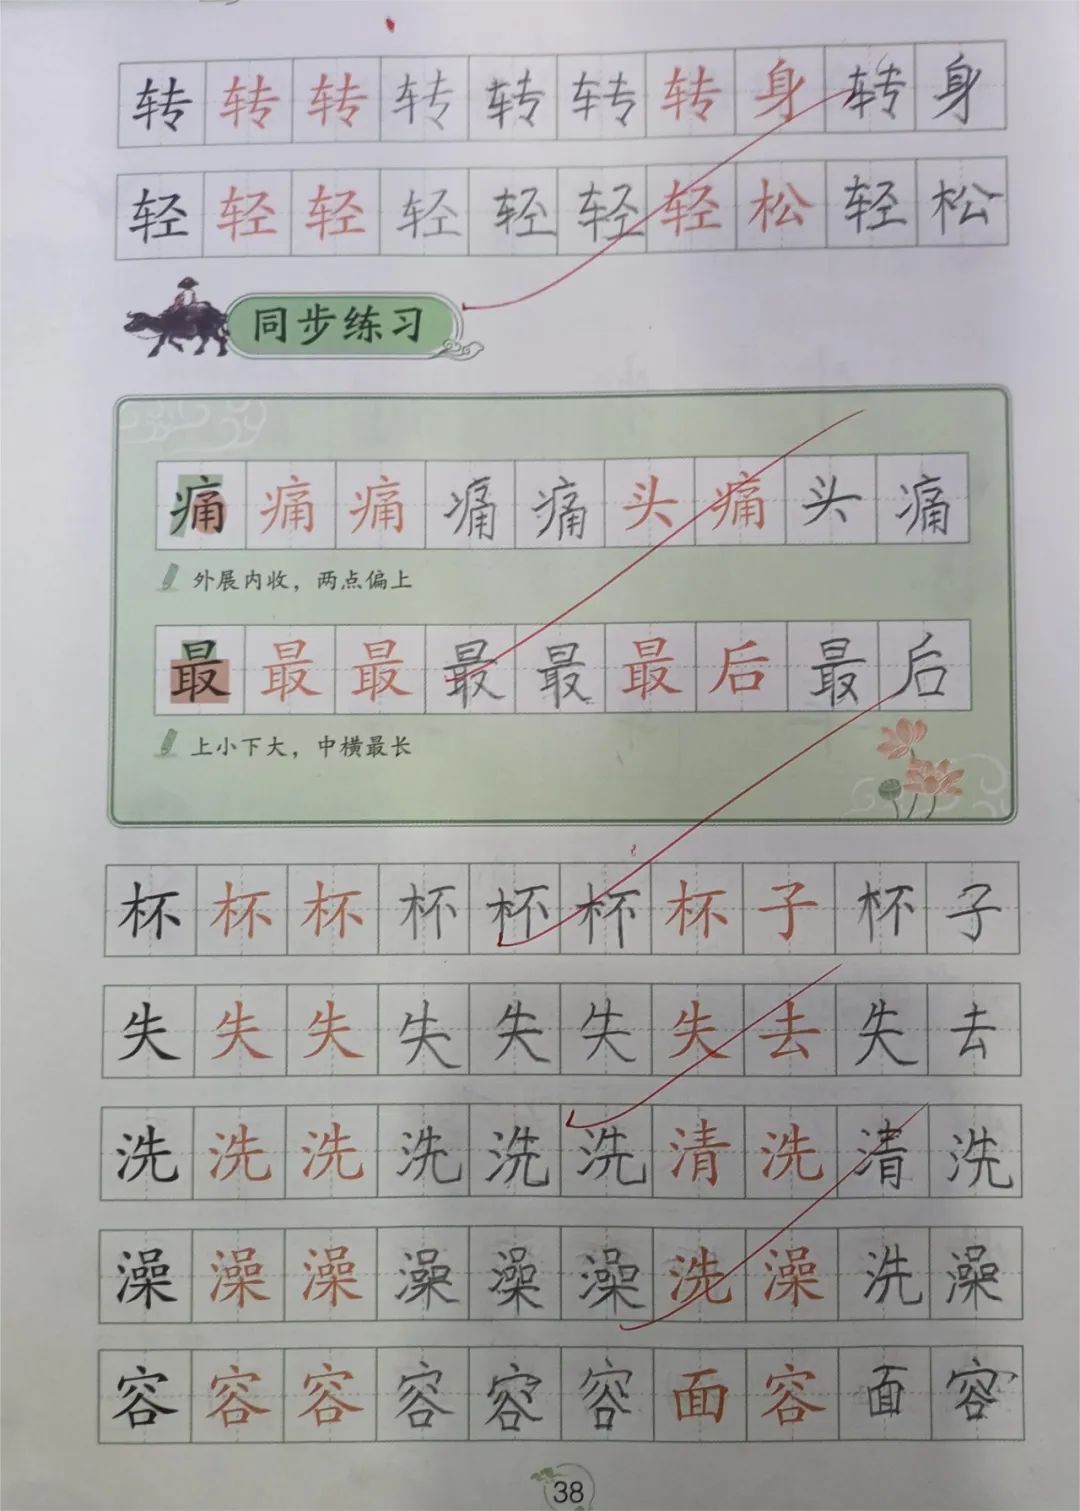 转转转转转转转身转身
轻轻轻轻轻轻轻松轻松
同步练习
痛痛痛痛痛头痛头痛
外展内收，两点偏上
最最最最最最后最后
上小下大，中横最长
杯杯杯杯杯杯杯子杯子
失失失失失失失去失去
洗洗洗洗洗洗清洗清洗
澡澡澡澡澡澡洗澡洗澡
容容容容容容面容面容
38